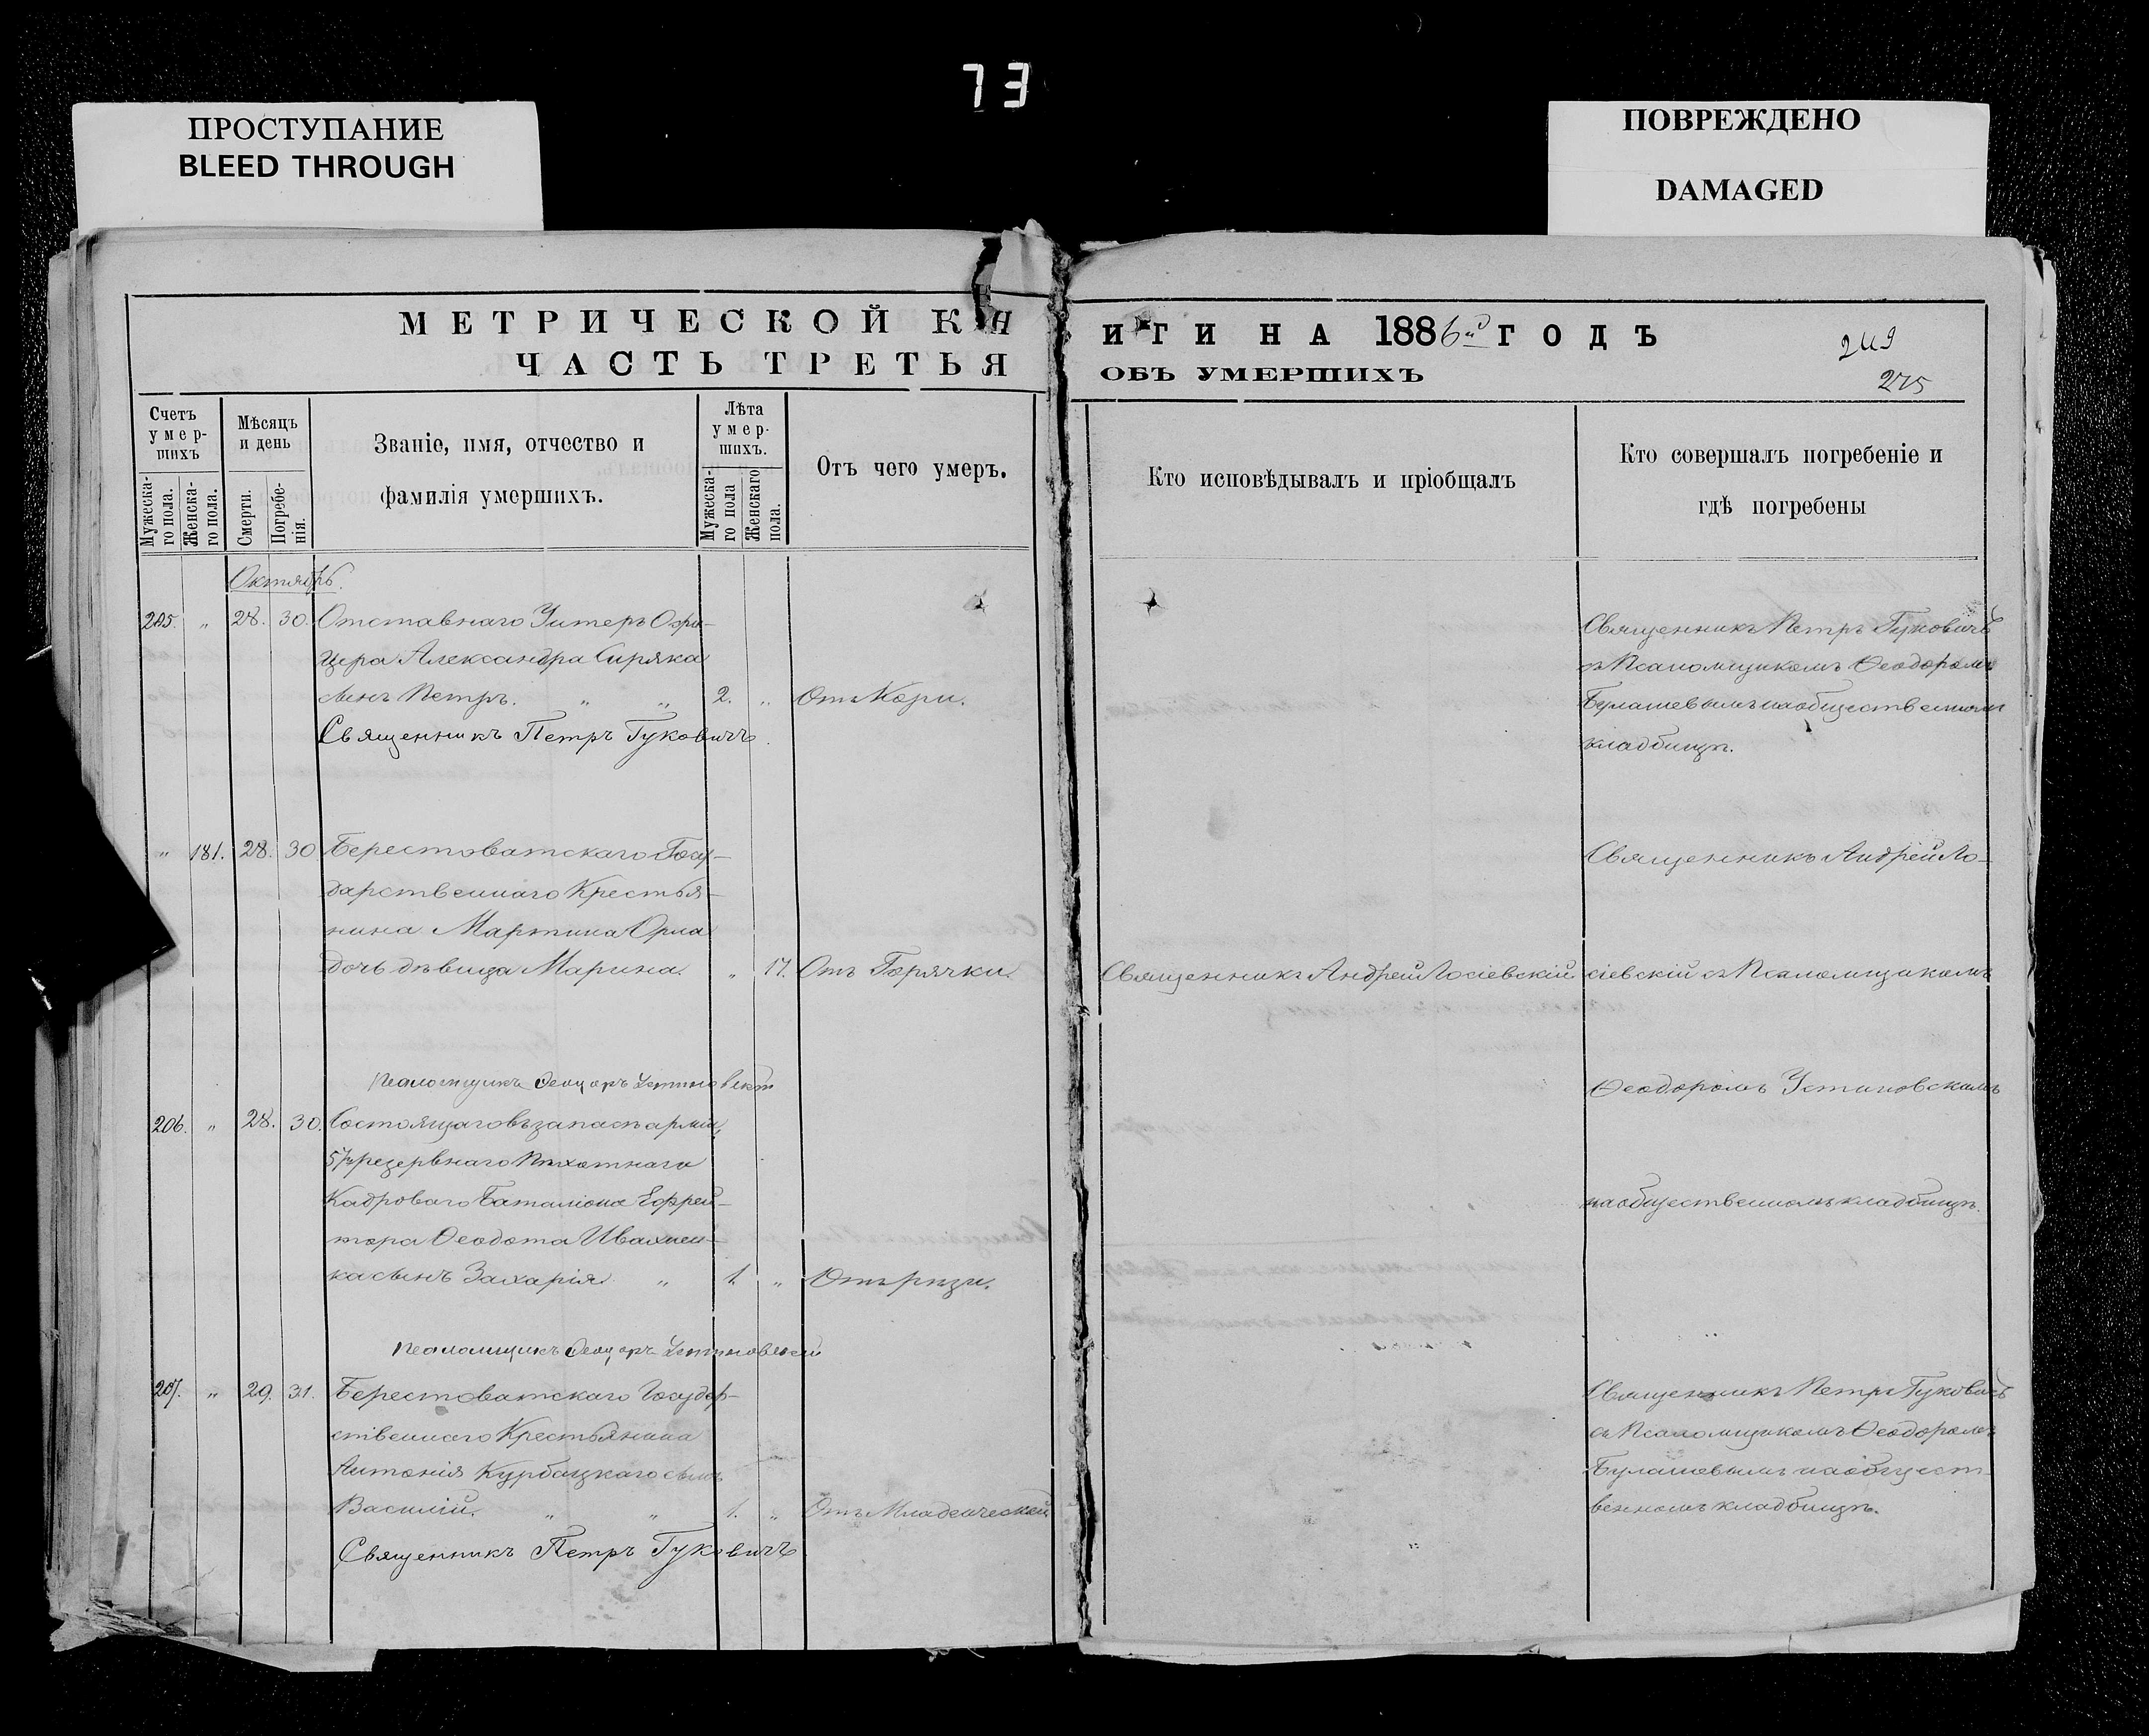 73
ПРОСТУПАНИЕ
BLEED THROUGH
ПОВРЕЖДЕНО
DAMAGED
МЕТРИЧЕСКОЙ КН
ЧАСТЬ ТРЕТЬЯ
ИГИ НА 1886й ГОДЪ
ОБЪ УМЕРШИХЪ
249
275
Счетъ умер-шихъ
Мужеска-го пола.
Женска-го пола.
Мѣсяцъ и день
Смерти.
Погребе-нія.
Званіе, имя, отчество и
фамилія умершихъ.
Лѣта умер-шихъ.
Мужеска-го пола
Женскаго пола.
Отъ чего умеръ.
Кто исповѣдывалъ и пріобщалъ
Кто совершалъ погребеніе и
гдѣ погребены
Октябрь.
205. " 28. 30. Отставнаго Унтеръ Офи-
цера Александра Сиряка
сынъ Петръ. " " 2. " Отъ Кори.
Священникъ Петръ Гуковичъ.
Священникъ Петръ Гуковичъ
съ Псаломщикомъ Ѳеодоромъ
Булашевымъ на общественномъ
кладбищѣ.
" 181. 28. 30 Берестоватскаго Госу-
дарственнаго Крестья-
нина Мартина Орла
дочь дѣвица Марина. " 17. Отъ Горячки.
Священникъ Андрей Лосіевскій
Священникъ Андрей Ло-
сіевскій съ Псаломщикомъ
Ѳеодоромъ Устиновскимъ
на общественномъ кладбищѣ.
Псаломщикъ Ѳеодоръ Устиновскій
206. " 28. 30. Состоящаго въ запасѣ арміи,
57го резервнаго Пѣхотнаго
Кадроваго Баталіона Ефрей-
тора Ѳеодота Ивахнен-
ка сынъ Захарія " 1. " Отъ рѣзи.
Псаломщикъ Ѳеодоръ Устиновскій
207. " 29. 31. Берестоватскаго Государ-
ственнаго Крестьянина
Антонія Курбацкаго сынъ
Василій. " " 1. " Отъ Младенческой
Священникъ Петръ Гуковичъ
Священникъ Петръ Гуковичъ
съ Псаломщикомъ Ѳеодоромъ
Булашевымъ на общест-
венномъ кладбищѣ.